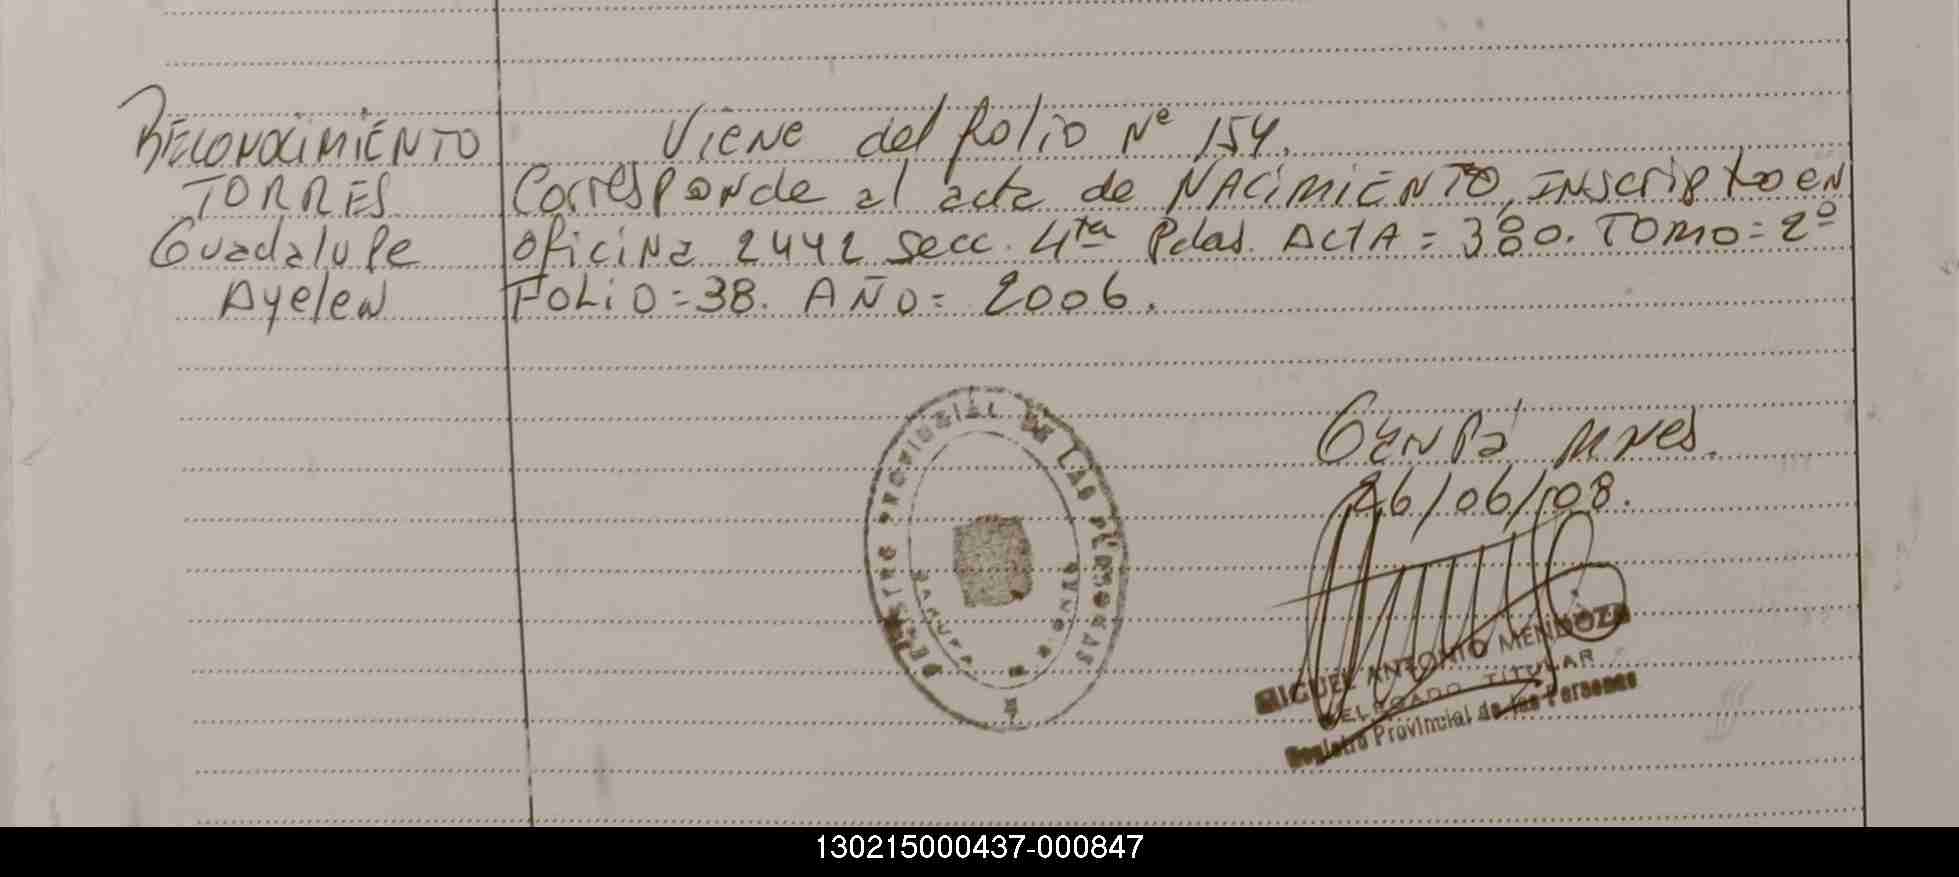 RECONOCIMIENTO
TORRES
Guadalupe
Ayelen
Viene del folio Nº 154.
Corresponde al acta de NACIMIENTO, INscripto EN
oficina 2442 secc. 4ta Pdas. ACTA = 380. TOMO = 2º
FOLIO = 38. AÑO = 2006.
REGISTRO PROVINCIAL DE LAS PERSONAS
Mnes.
26/06/08.
MIGUEL ANTONIO MENDOZA
DELEGADO TITULAR
Registro Provincial de las Personas
130215000437-000847